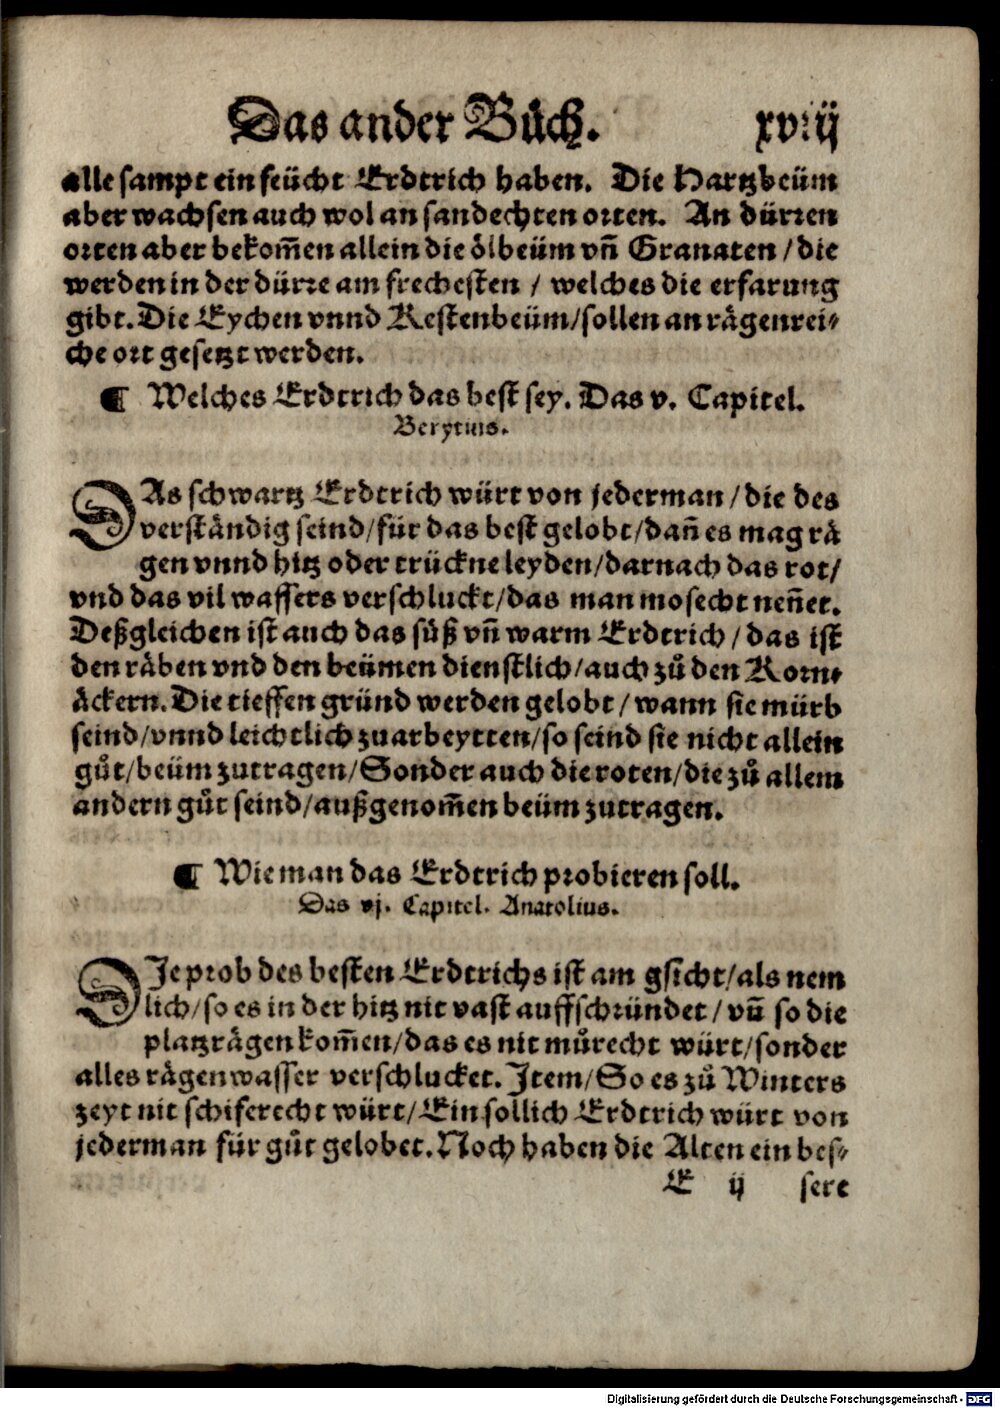 Das ander Bůch. xviij
alle sampt ein feücht Erdtrich haben. Die Hartzbeüm
aber wachsen auch wol an sandechten orten. An dürren
orten aber bekom̃en allein die ölbeüm vñ Granaten / die
werden in der dürre am frechesten / welches die erfarung
gibt. Die Eychen vnnd Kestenbeüm/sollen an rägenrei⸗
che ort gesetzt werden.
¶ Welches Erdtrich das best sey. Das v. Capitel.
Berytius.
DAs schwartz Erdtrich würt von jederman / die des
verständig seind/für das best gelobt/dañ es mag rä
gen vnnd hitz oder trückne leyden/darnach das rot/
vnd das vil wassers verschluckt/das man mosecht neñet.
Deßgleichen ist auch das süß vñ warm Erdtrich / das ist
den räben vnd den beümen dienstlich/auch zů den Korn⸗
äckern. Die tieffen gründ werden gelobt / wann sie mürb
seind/vnnd leichtlich zuarbeytten/so seind sie nicht allein
gůt/beüm zutragen/Sonder auch die roten/die zů allem
andern gůt seind/außgenom̃en beüm zutragen.
¶ Wie man das Erdtrich probieren soll.
Das vj. Capitel. Anatolius.
DIe prob des besten Erdtrichs ist am gsicht/als nem
lich/so es in der hitz nit vast auffschründet / vñ so die
platzrägen kom̃en/das es nit můrecht würt/sonder
alles rägenwasser verschlucket. Item/So es zů Winters
zeyt nit schiferecht würt/Ein sollich Erdtrich würt von
jederman für gůt gelobet. Noch haben die Alten ein bes⸗
E ij sere
Digitalisierung gefördert durch die Deutsche Forschungsgemeinschaft - DFG